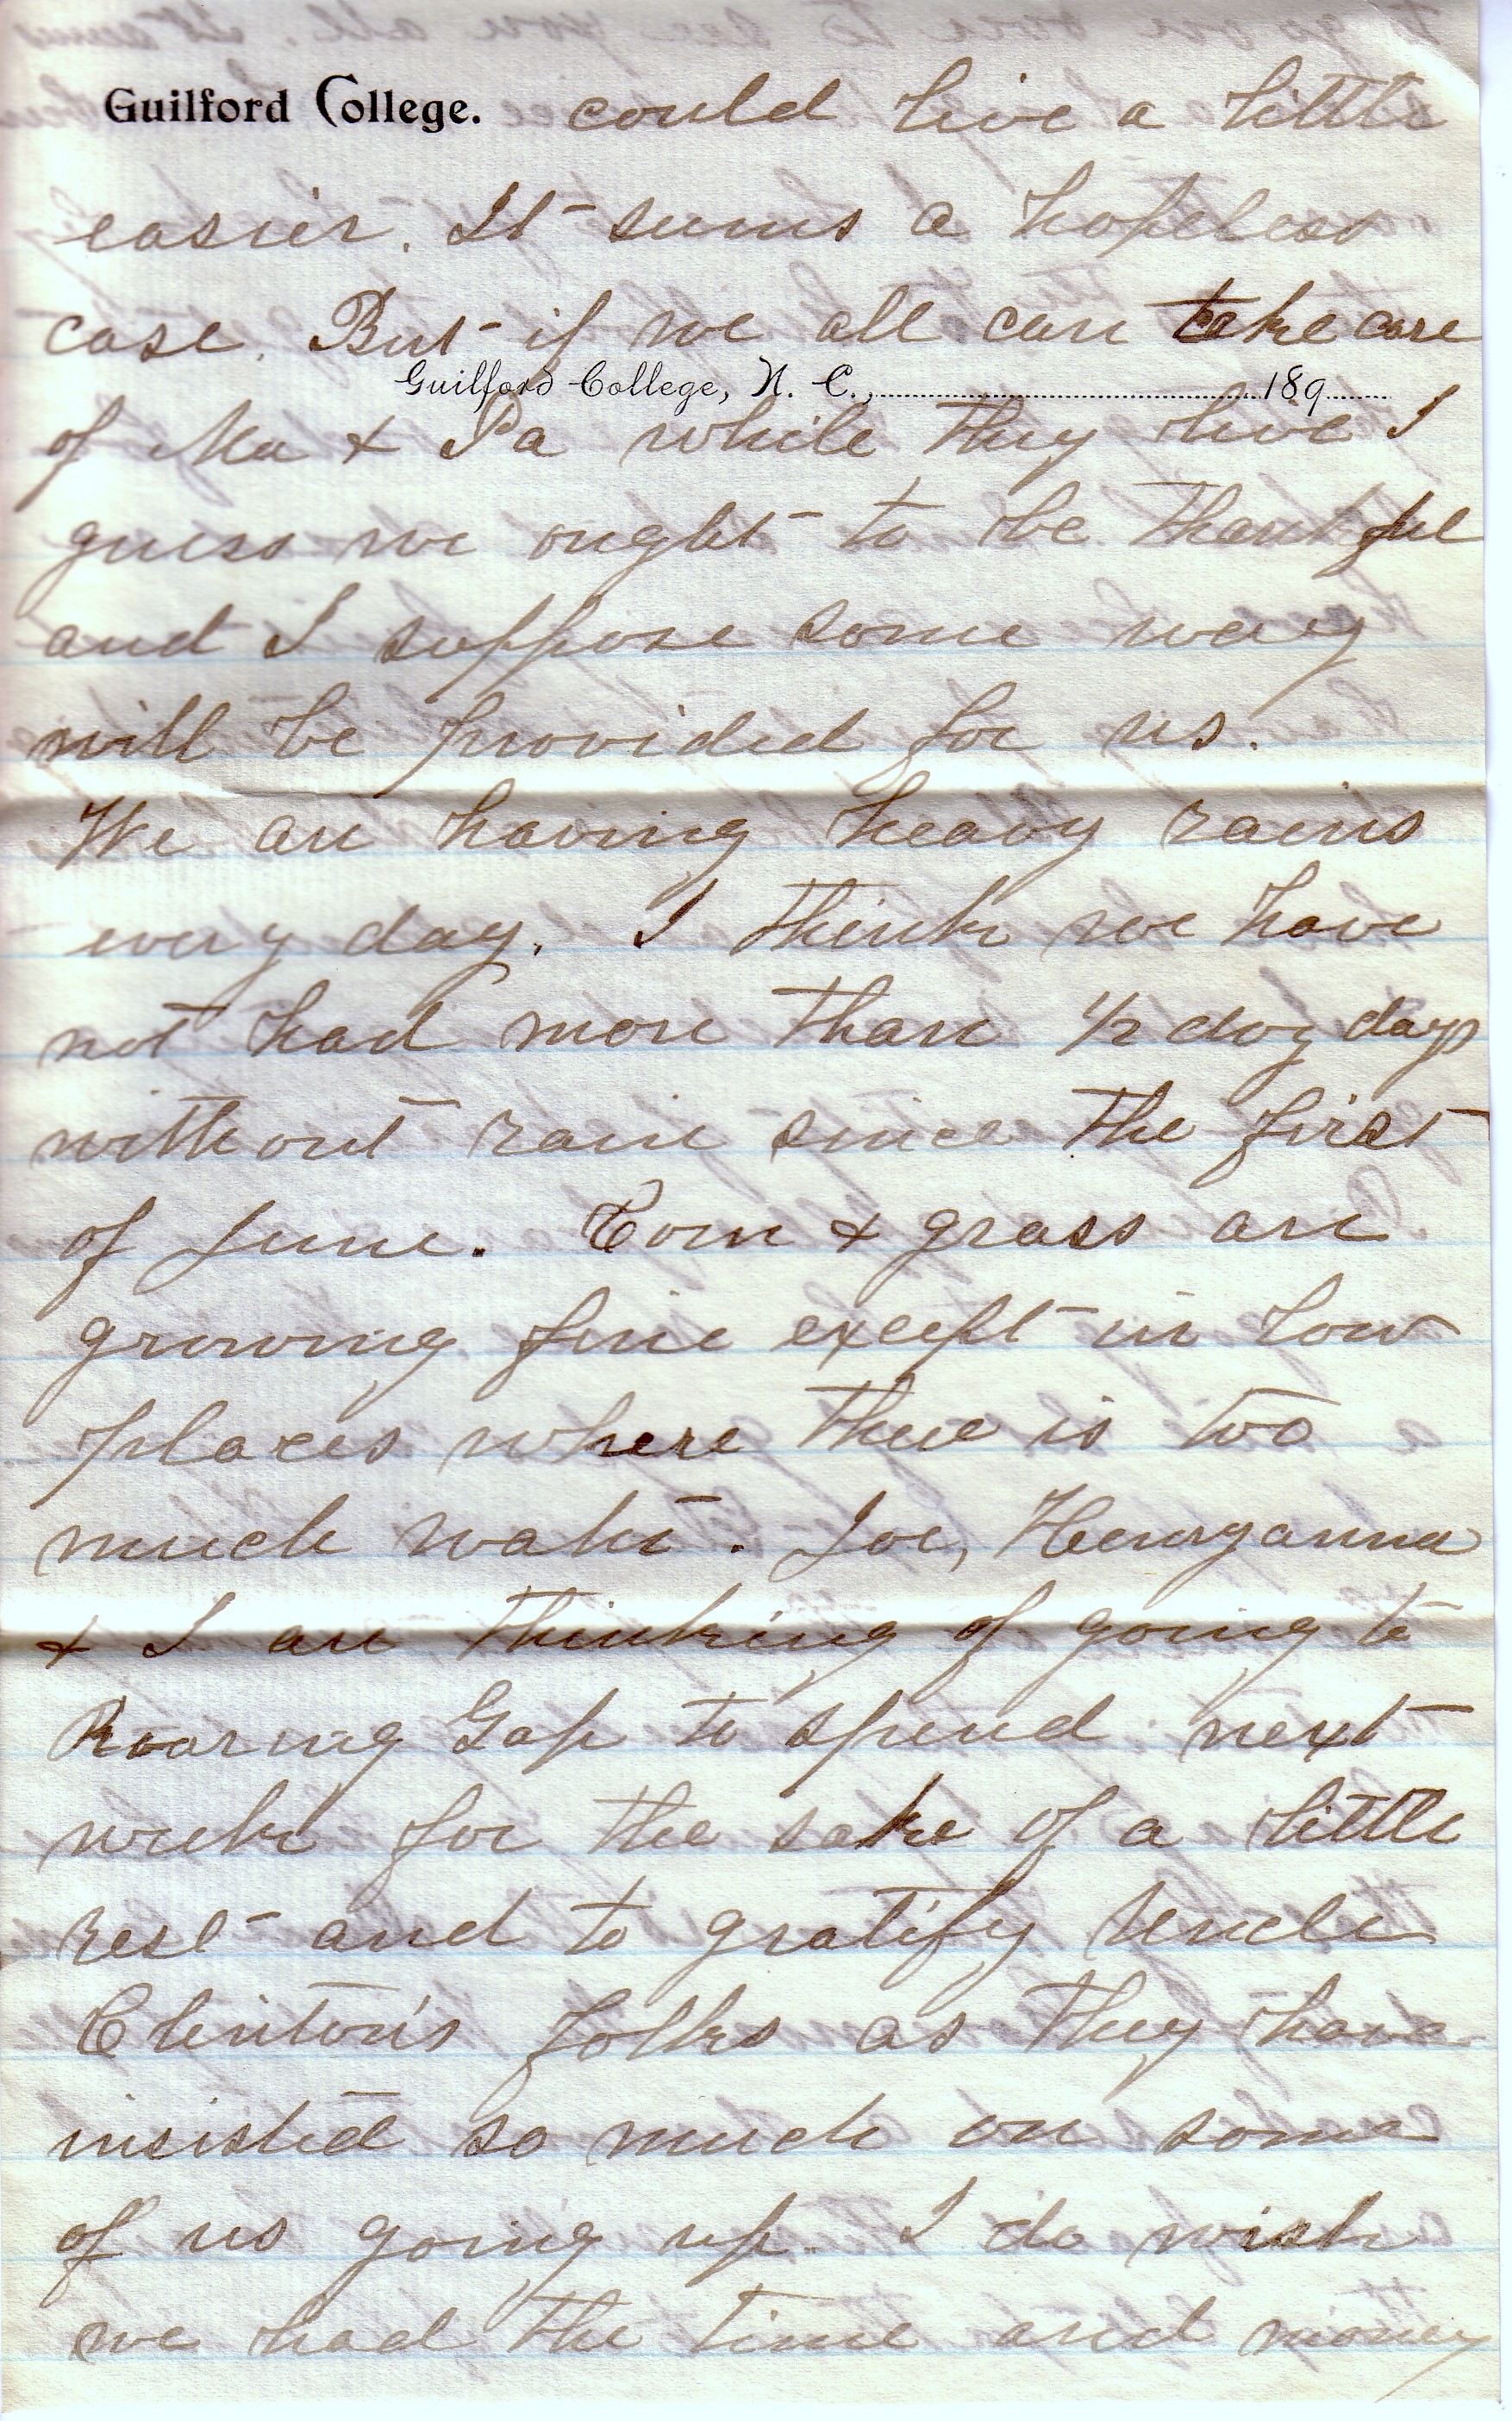 Guilford College. could live a little
easier. It seems a hopeless
case. But if we all can take care
Guilford College, N. C., 189
of Ma & Pa while they live I
guess we ought to be thankful
and I suppose some way
will be provided for us.
We are having heavy rains
every day. I think we have
not had more than 1/2 doz days
without rain since the first
of June. Corn & grass are
growing fine except in low
places where there is too
much water. Joe, Henryanna
& I are thinking of going to
Roaring Gap to spend next
week for the sake of a little
rest and to gratify Uncle
Clinton's folks as they have
insisted so much on some
of us going up. I do wish
we had the time and money